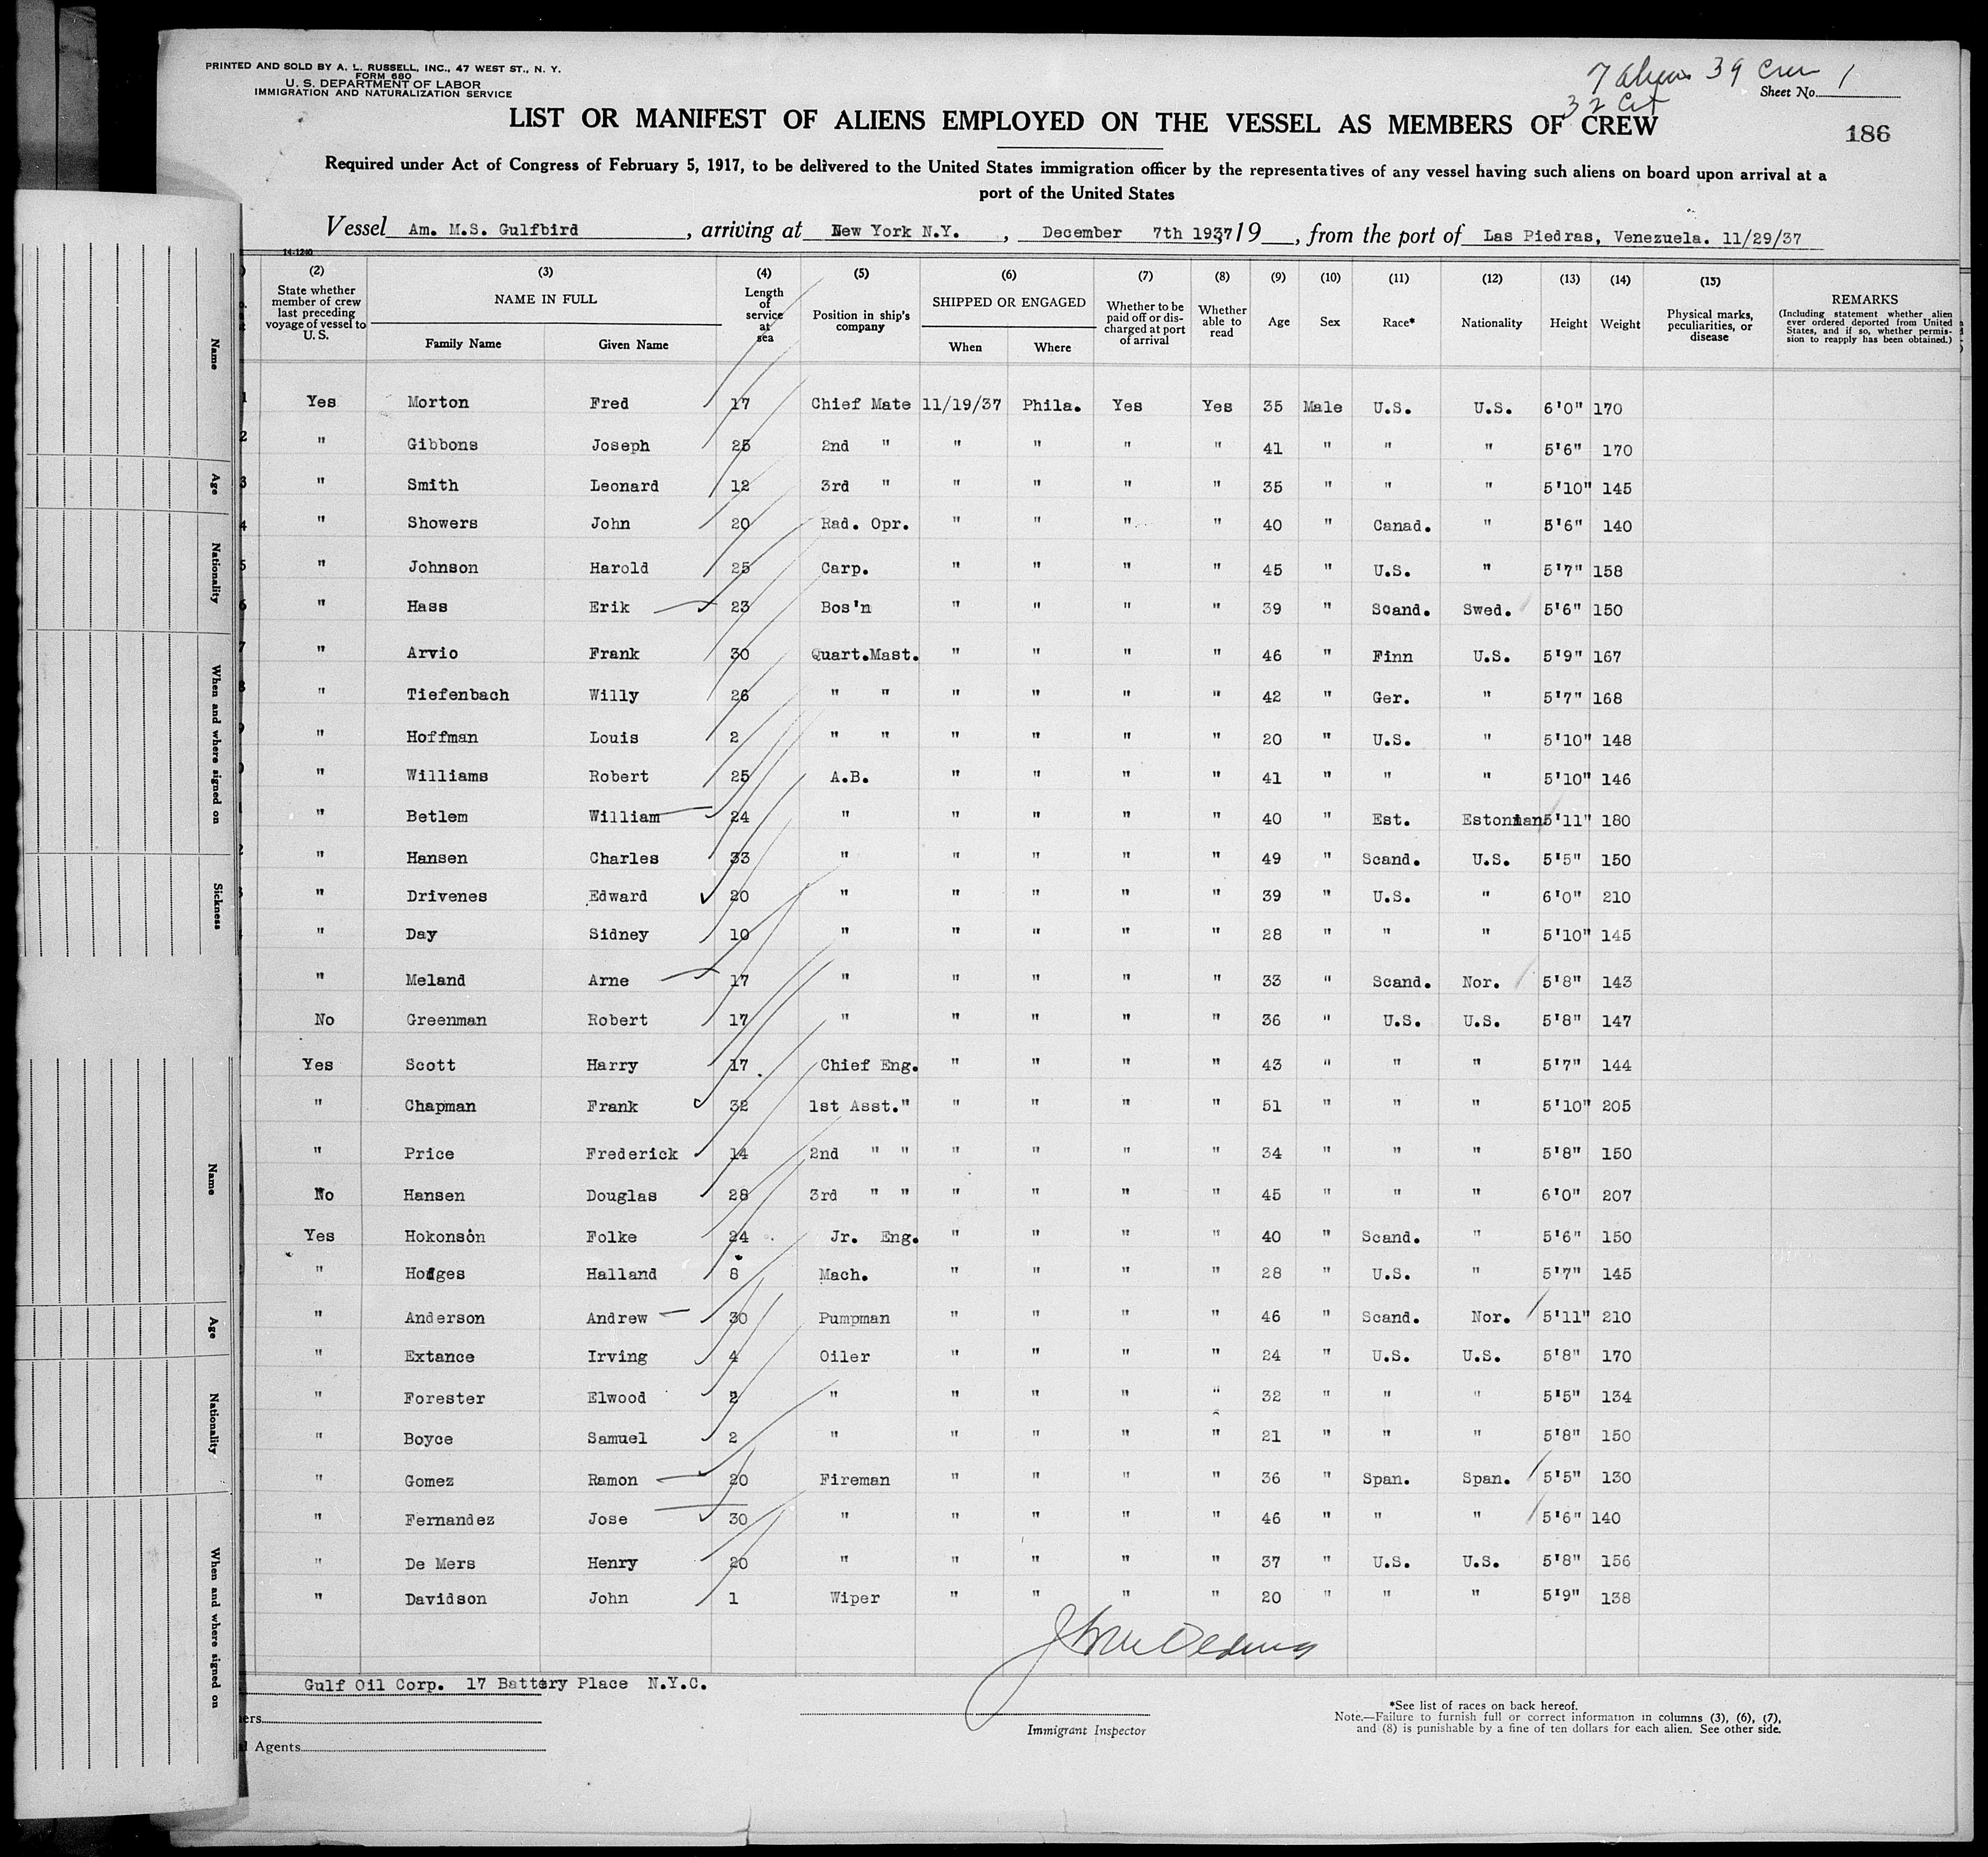 PRINTED AND SOLD BY A. L. RUSSELL, INC., 47 WEST ST., N. Y.
FORM 680
U. S. DEPARTMENT OF LABOR
IMMIGRATION AND NATURALIZATION SERVICE
7 aliens 39 Crew 1
32 Cit
Sheet No.
LIST OR MANIFEST OF ALIENS EMPLOYED ON THE VESSEL AS MEMBERS OF CREW
186
Required under Act of Congress of February 5, 1917, to be delivered to the United States immigration officer by the representatives of any vessel having such aliens on board upon arrival at a
port of the United States
Vessel Am. M.S. Gulfbird, arriving at New York N.Y., December 7th 1937 19, from the port of Las Piedras, Venezuela. 11/29/37
14-1240
(2) (3) (4) (5) (6) (7) (8) (9) (10) (11) (12) (13) (14) (15)
State whether member of crew last preceding voyage of vessel to U. S. NAME IN FULL Family Name Given Name Length of service at sea Position in ship's company SHIPPED OR ENGAGED When Where Whether to be paid off or discharged at port of arrival Whether able to read Age Sex Race* Nationality Height Weight Physical marks, peculiarities, or disease REMARKS (Including statement whether alien ever ordered deported from United States, and if so, whether permission to reapply has been obtained.)
1 Yes Morton Fred 17 Chief Mate 11/19/37 Phila. Yes Yes 35 Male U.S. U.S. 6'0" 170
2 " Gibbons Joseph 25 2nd " " " " " 41 " " " 5'6" 170
3 " Smith Leonard 12 3rd " " " " " 35 " " " 5'10" 145
4 " Showers John 20 Rad. Opr. " " " " 40 " Canad. " 5'6" 140
5 " Johnson Harold 25 Carp. " " " " 45 " U.S. " 5'7" 158
6 " Hass Erik 23 Bos'n " " " " 39 " Scand. Swed. 5'6" 150
7 " Arvio Frank 30 Quart.Mast. " " " " 46 " Finn U.S. 5'9" 167
8 " Tiefenbach Willy 26 " " " " " " 42 " Ger. " 5'7" 168
9 " Hoffman Louis 2 " " " " " " 20 " U.S. " 5'10" 148
0 " Williams Robert 25 A.B. " " " " 41 " " " 5'10" 146
1 " Betlem William 24 " " " " " 40 " Est. Estonian 5'11" 180
2 " Hansen Charles 33 " " " " " 49 " Scand. U.S. 5'5" 150
3 " Drivenes Edward 20 " " " " " 39 " U.S. " 6'0" 210
" Day Sidney 10 " " " " " 28 " " " 5'10" 145
" Meland Arne 17 " " " " " 33 " Scand. Nor. 5'8" 143
No Greenman Robert 17 " " " " " 36 " U.S. U.S. 5'8" 147
Yes Scott Harry 17 Chief Eng. " " " " 43 " " " 5'7" 144
" Chapman Frank 32 1st Asst." " " " " 51 " " " 5'10" 205
" Price Frederick 14 2nd " " " " " " 34 " " " 5'8" 150
No Hansen Douglas 28 3rd " " " " " " 45 " " " 6'0" 207
Yes Hokonson Folke 24 Jr. Eng. " " " " 40 " Scand. " 5'6" 150
" Hodges Halland 8 Mach. " " " " 28 " U.S. " 5'7" 145
" Anderson Andrew 30 Pumpman " " " " 46 " Scand. Nor. 5'11" 210
" Extance Irving 4 Oiler " " " " 24 " U.S. U.S. 5'8" 170
" Forester Elwood 2 " " " " " 32 " " " 5'5" 134
" Boyce Samuel 2 " " " " " 21 " " " 5'8" 150
" Gomez Ramon 20 Fireman " " " " 36 " Span. Span. 5'5" 130
" Fernandez Jose 30 " " " " " 46 " " " 5'6" 140
" De Mers Henry 20 " " " " " 37 " U.S. U.S. 5'8" 156
" Davidson John 1 Wiper " " " " 20 " " " 5'9" 138
Gulf Oil Corp. 17 Battery Place N.Y.C.
ers
Agents
Immigrant Inspector
*See list of races on back hereof.
Note.—Failure to furnish full or correct information in columns (3), (6), (7),
and (8) is punishable by a fine of ten dollars for each alien. See other side.
Name
Age
Nationality
When and where signed on
Sickness
Name
Age
Nationality
When and where signed on